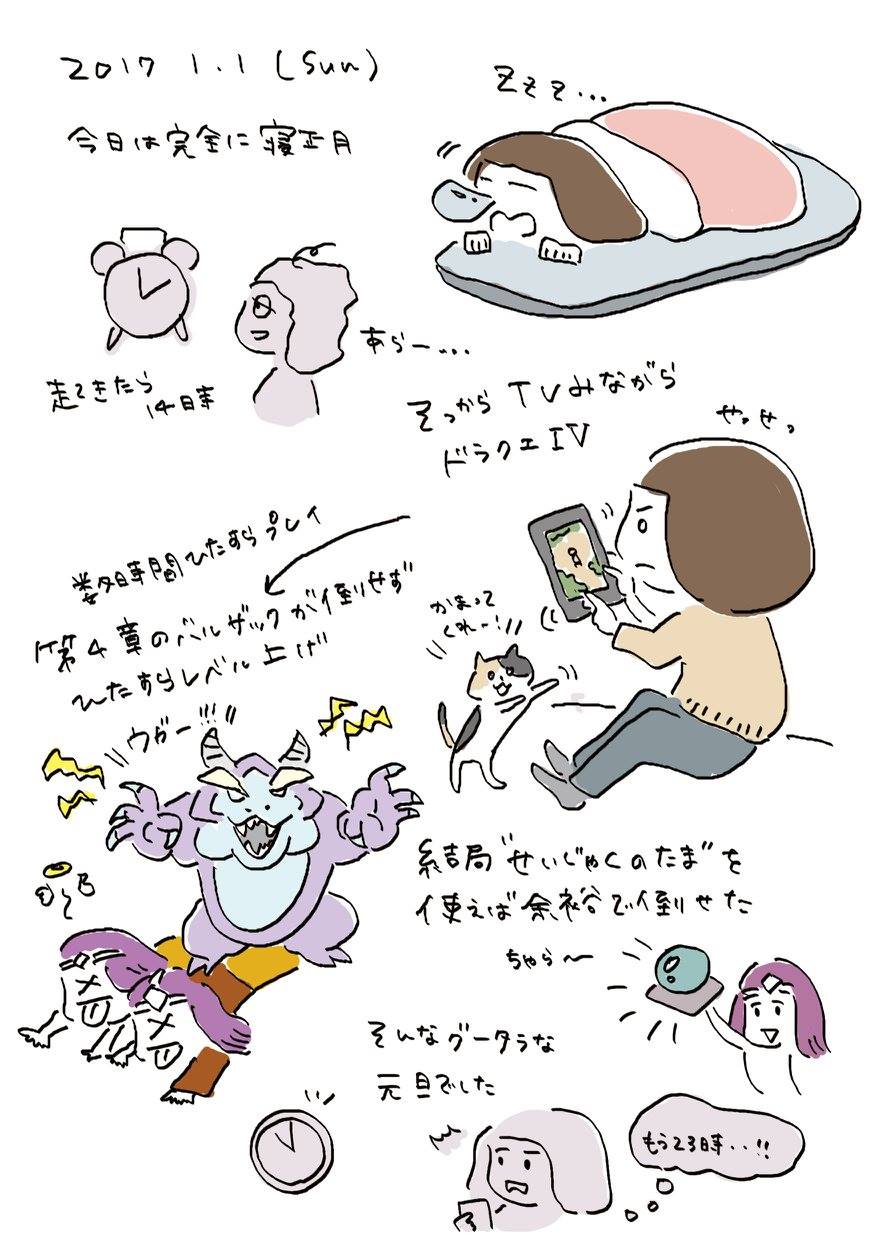 2017 1.1 (Sun)
今日は完全に寝正月
Zzz...
あらー...
起てきたら
14時
そっから TVみながら
ドラクエIV
せっせっ
数時間ひたすらプレイ
第4章のバルザックが倒せず
ひたすらレベル上げ
かまって
くれー!!
ウガー!!!
結局"せいじゃくのたま"を
使えば余裕で倒せた
ちゃら〜
そんなグータラな
元旦でした
もう23時..!!